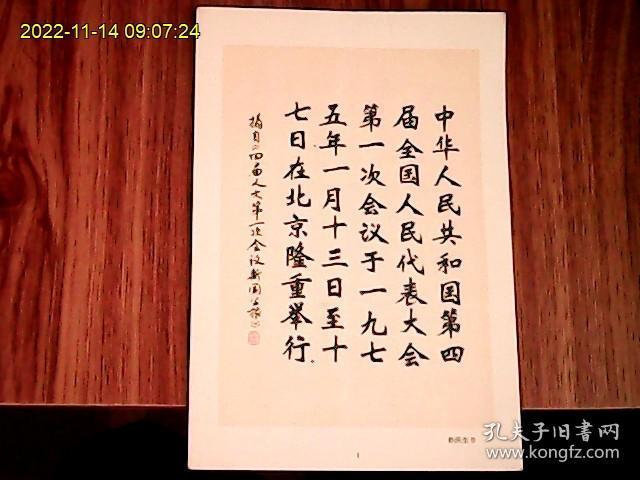 2022-11-14 09:07:24
中华人民共和国第四
届全国人民代表大会
第一次会议于一九七
五年一月十三日至十
七日在北京隆重举行。
摘自《四届人大第一次会议新闻公报》
1
孔夫子旧书网
www.kongfz.com